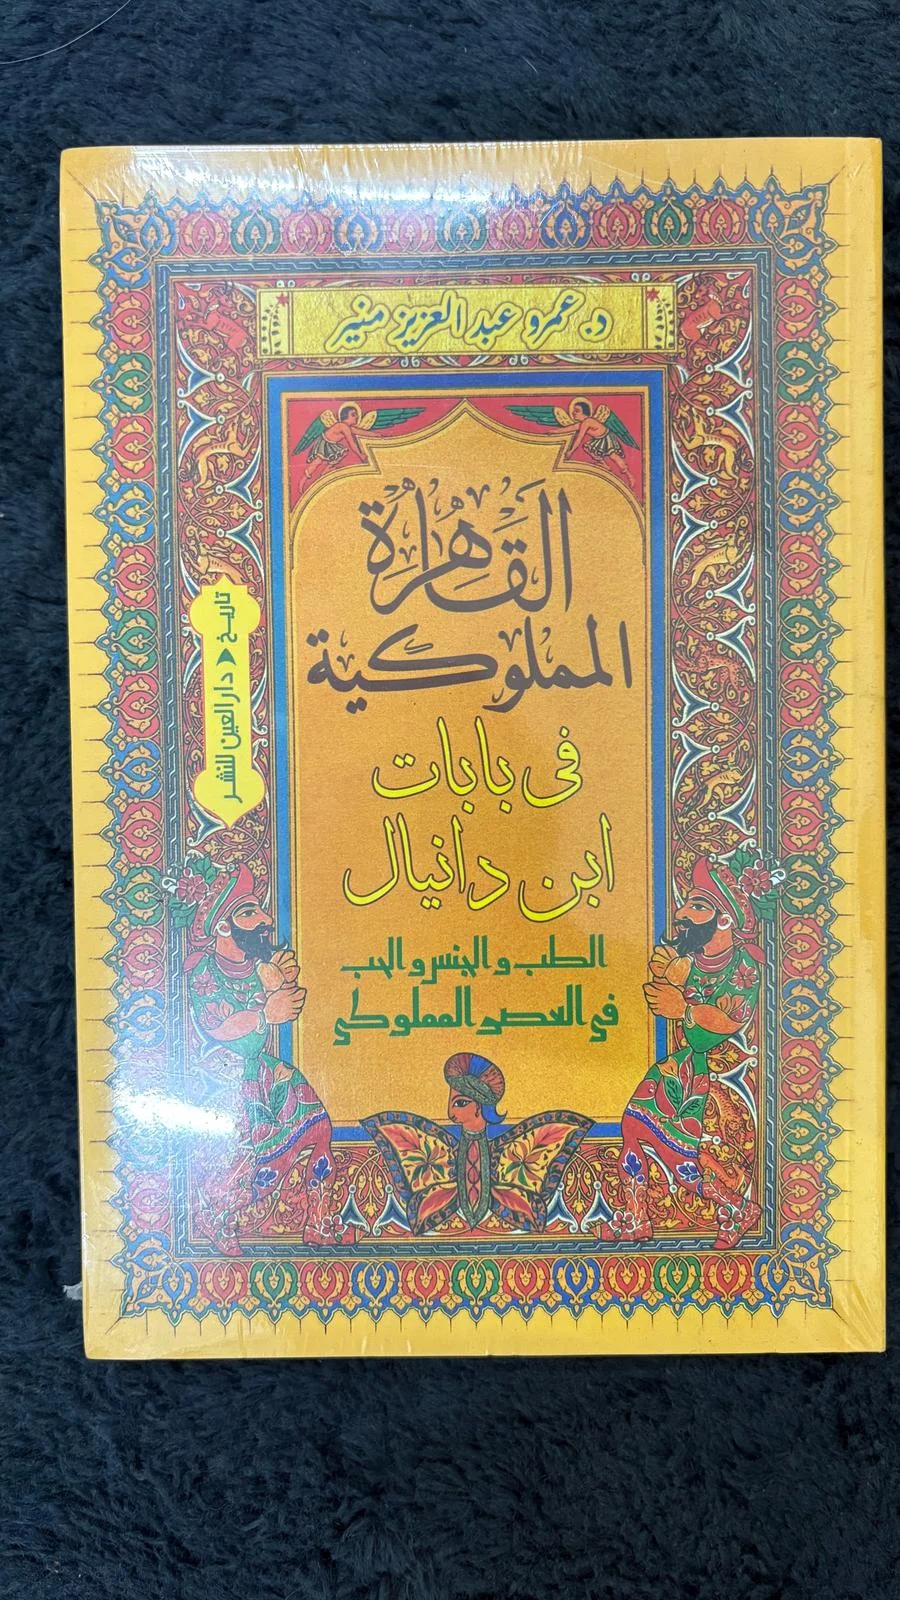 د. عمرو عبد العزيز منير
القَاهِرَة
المملوكية
فى بابات
ابن دانيال
الطب والجنس والحب
في العصر المملوكي
تاريخ دار العين للنشر